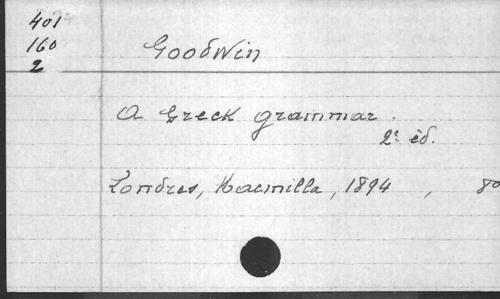 401
160
2
Goodwin
A Greek grammar.
2e éd.
Londres, Macmilla, 1894, 8o